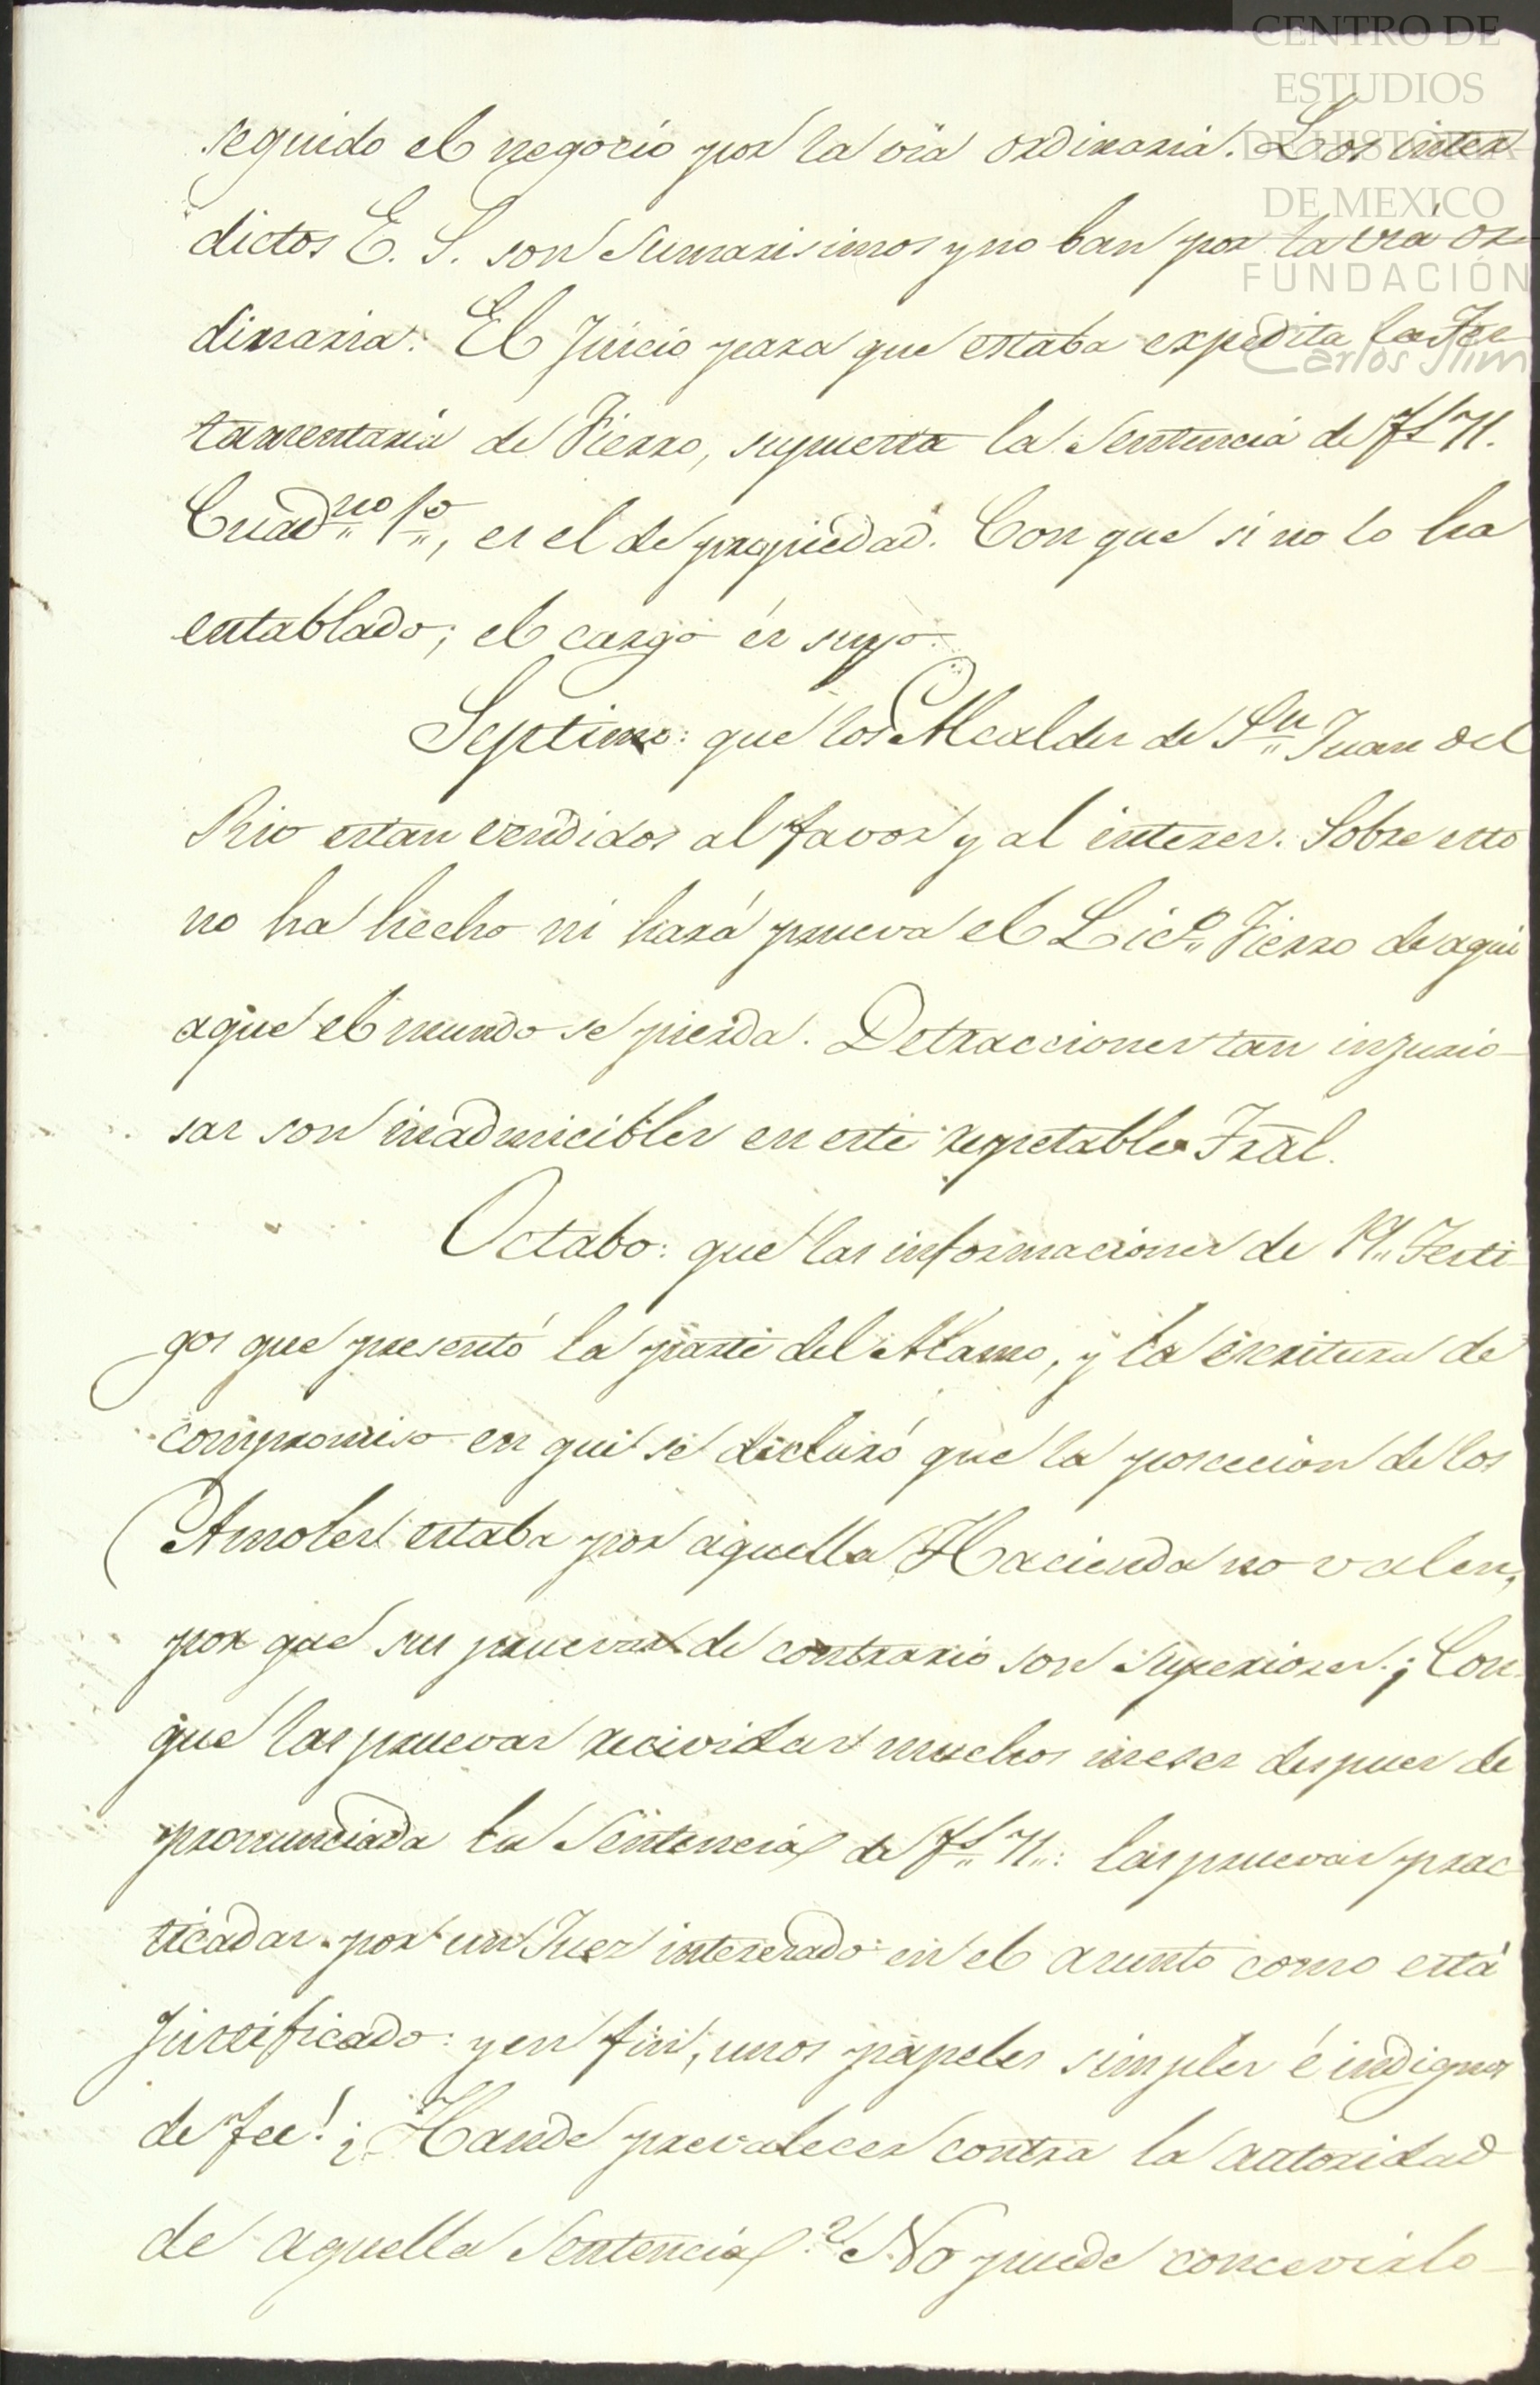 CENTRO DE
ESTUDIOS
DE HISTORIA
DE MEXICO
FUNDACIÓN
Carlos Slim
seguido el negocio por la via ordinaria. Los inter
dictos E. S. son sumarisimos y no ban por la via or
dinaria. El Juicio para que estaba expedita la Tes
tamentaria de Fierro, supuesta la Sentencia de fs 71.
Cuadno 1o, es el de propiedad. Con que si no lo ha
entablado; el cargo és suyo.
Septimo: que los Alcaldes de Sn Juan del
Rio estan vendidos al favor y al interes. Sobre esto
no ha hecho ni hará prueva el Lico Fierro de aqui
aque el mundo se pierda. Detracciones tan injurio-
sas son inadmicibles en este respetable Tral.
Octabo: que las informaciones de 19 Testi
gos que presentó la parte del Alamo, y la escritura de
compromiso en que se declaró que la poseecion de los
Amoles estaba por aquella Hacienda no valen,
por que sus pruevas de contrario son superiores. ¡Con
que las pruevas recividas muchos meses despues de
pronunciada la Sentencia de fs 71: las pruevas prac
ticadas por un Juez interesado en el asunto como está
justificado: y en fin, unos papeles simples é indignos
de fee! ¿Hande prevalecer contra la autoridad
de aquella Sentencia? No puede concevirlo